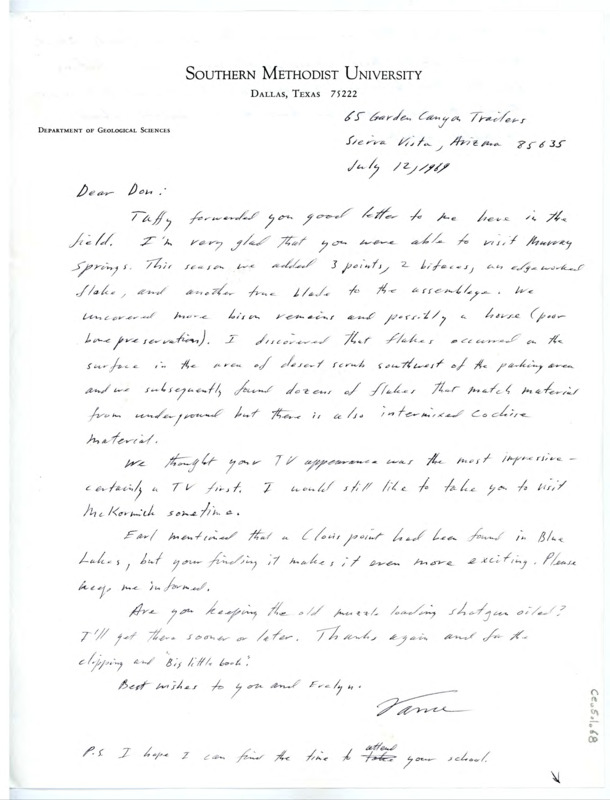 SOUTHERN METHODIST UNIVERSITY
DALLAS, TEXAS 75222
DEPARTMENT OF GEOLOGICAL SCIENCES
65 Garden Canyon Trailers
Sierra Vista, Arizona 85635
July 12, 1969
Dear Don:
Taffy forwarded you good letter to me here in the
field. I'm very glad that you were able to visit Murray
Springs. This season we added 3 points, 2 bifaces, an edgeworked
flake, and another true blade to the assemblage. We
uncovered more bison remains and possibly a horse (poor
bone preservation). I discovered that flakes occurred on the
surface in the area of desert scrub southwest of the parking area
and we subsequently found dozens of flakes that match material
from underground but there is also intermixed Cochise
material.
We thought your TV appearance was the most impressive -
certainly a TV first. I would still like to take you to visit
McKormick sometime.
Earl mentioned that a Clovis point had been found in Blue
Lakes, but your finding it makes it even more exciting. Please
keep me informed.
Are you keeping the old muzzle loading shotgun oiled?
I'll get there sooner or later. Thanks again and for the
clipping and "Big little book".
Best wishes to you and Evelyn.
Vance
P.S. I hope I can find the time to attend your school.